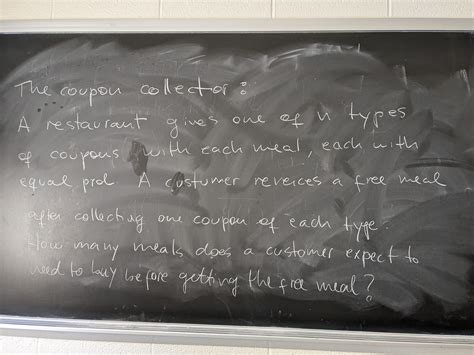 The coupon collector:
A restaurant gives one of n types
of coupons with each meal, each with
equal prob. A customer reveices a free meal
after collecting one coupon of each type.
How many meals does a customer expect to
need to buy before getting the free meal?